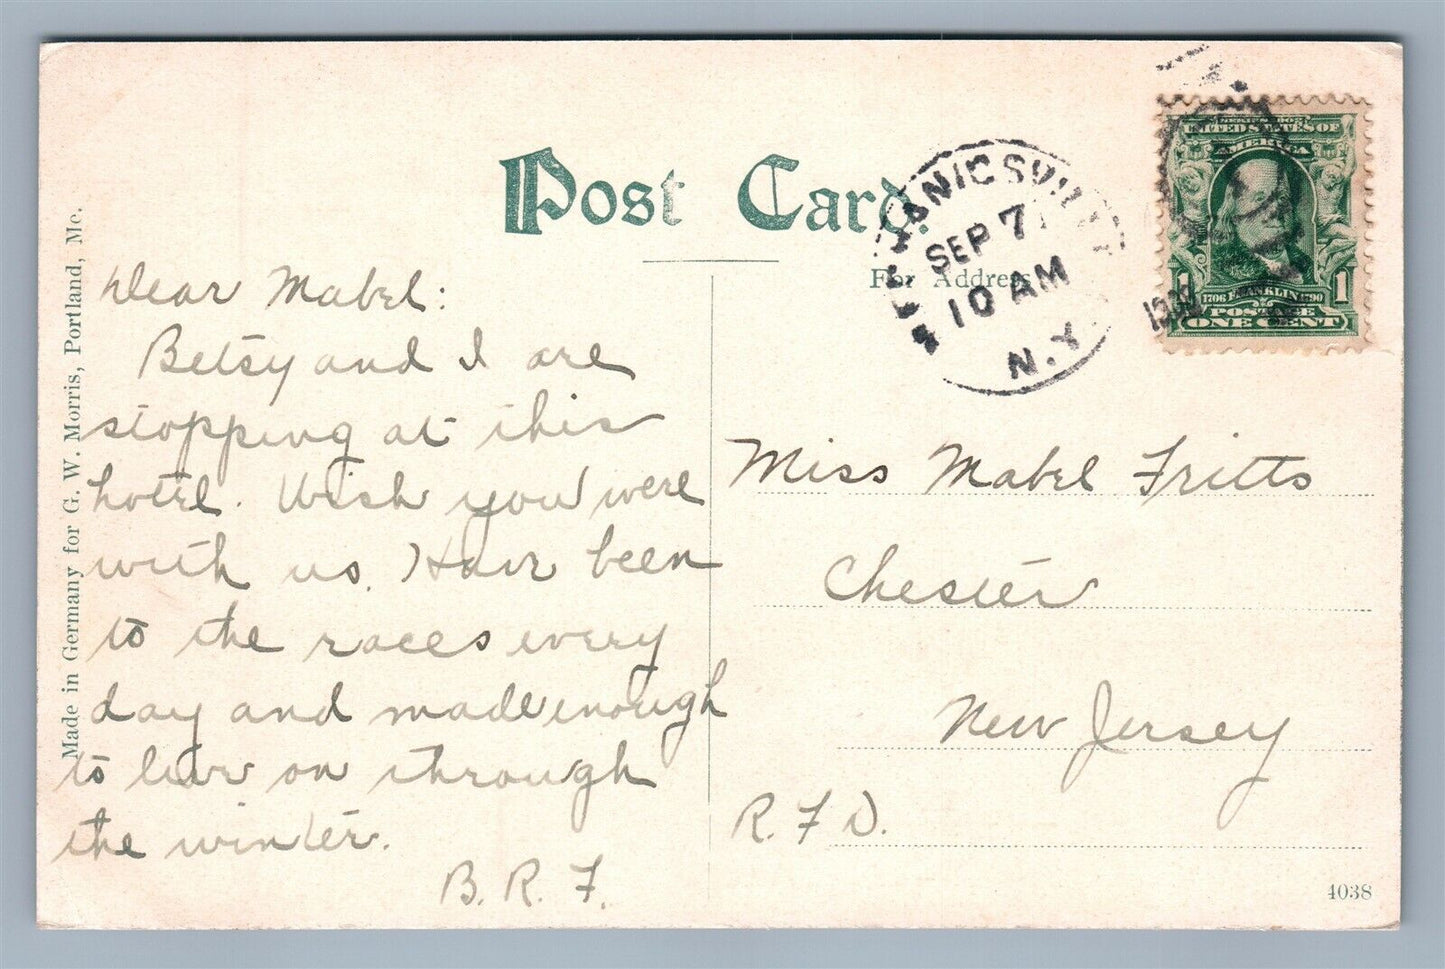 Post Card.
For Address
MECHANICSVILLE
SEP 7
10 AM
N.Y.
SERIES 1902
UNITED STATES OF
AMERICA
1 1
1706 FRANKLIN 1790
POSTAGE
ONE CENT
Made in Germany for G. W. Morris, Portland, Me.
Dear Mabel:
Betsy and I are
stopping at this
hotel. Wish you were
with us. Have been
to the races every
day and made enough
to live on through
the winter.
B. R. F.
Miss Mabel Fritts
Chester
New Jersey
R. F. D.
4038